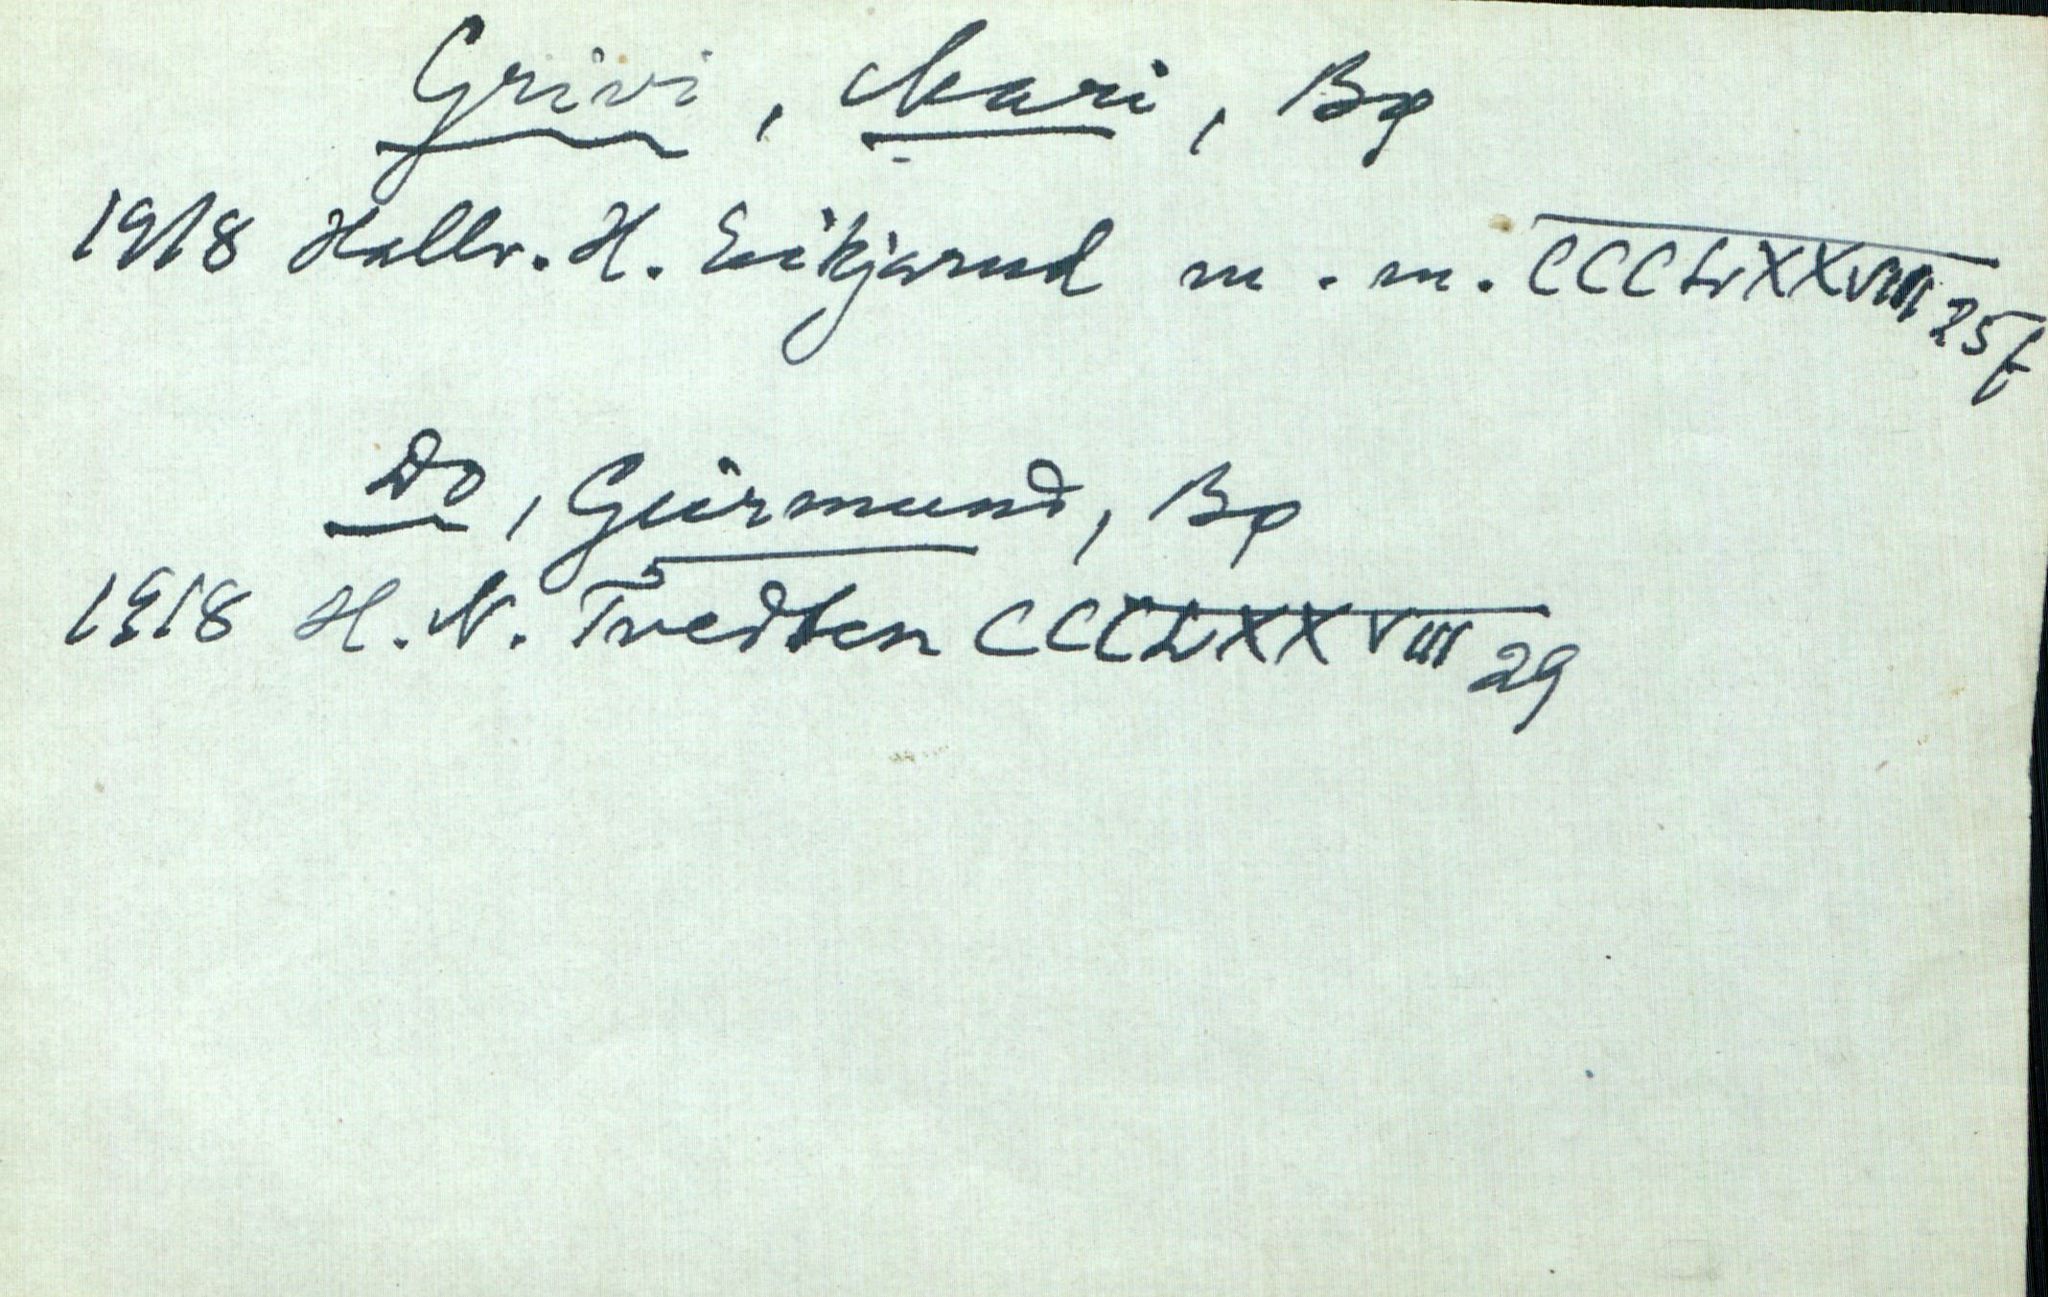 Grivi, Mari, Bø
1918 Hallv. H. Eikjarud m.m. CCCLXXVIII 25f
Do, Geirmund, Bø
1918 H. N. Tvedten CCCLXXVIII 29